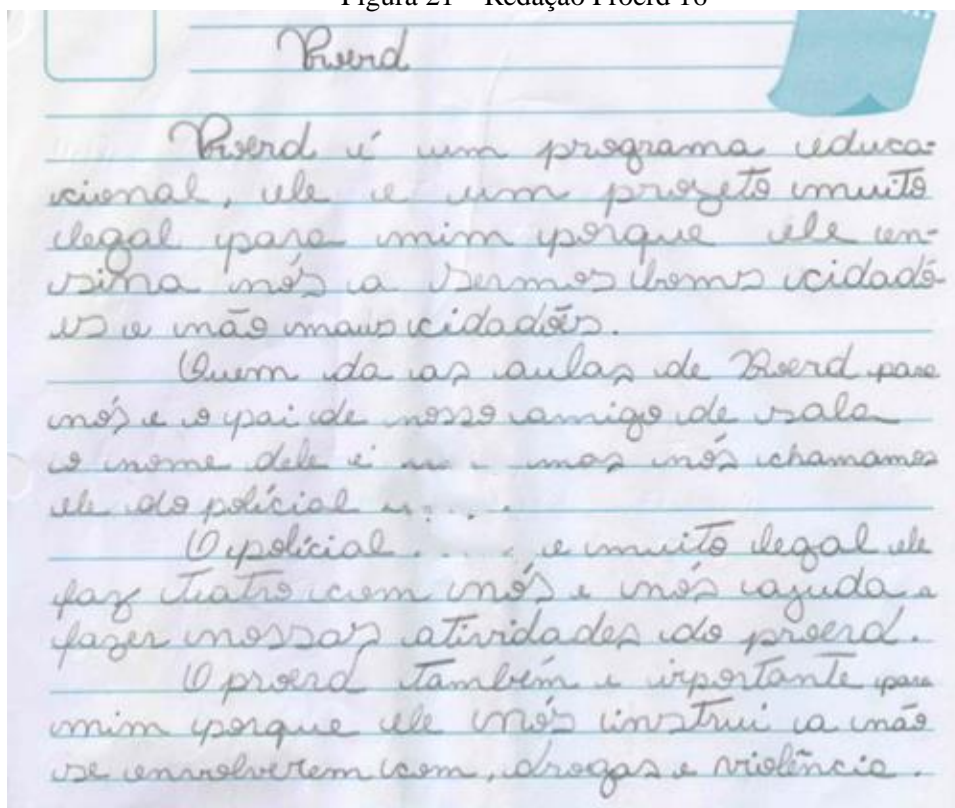 Figura 21 – Redação Proerd 16
Proerd
Proerd é um programa educa-
cional, ele e um projeto muito
legal para mim porque ele en-
sina nós a sermos boms cidadõ
es e não maus cidadões.
Quem da as aulas de Proerd para
nós e o pai de nosso amigo de sala
o nome dele é mas nós chamamos
ele do polícial
O polícial . . . . e muito legal ele
faz teatro com nós e nós ajuda a
fazer nossas atividades do proerd.
O proerd também e inportante para
mim porque ele nós instrui a não
se envolverem com, drogas e violência.